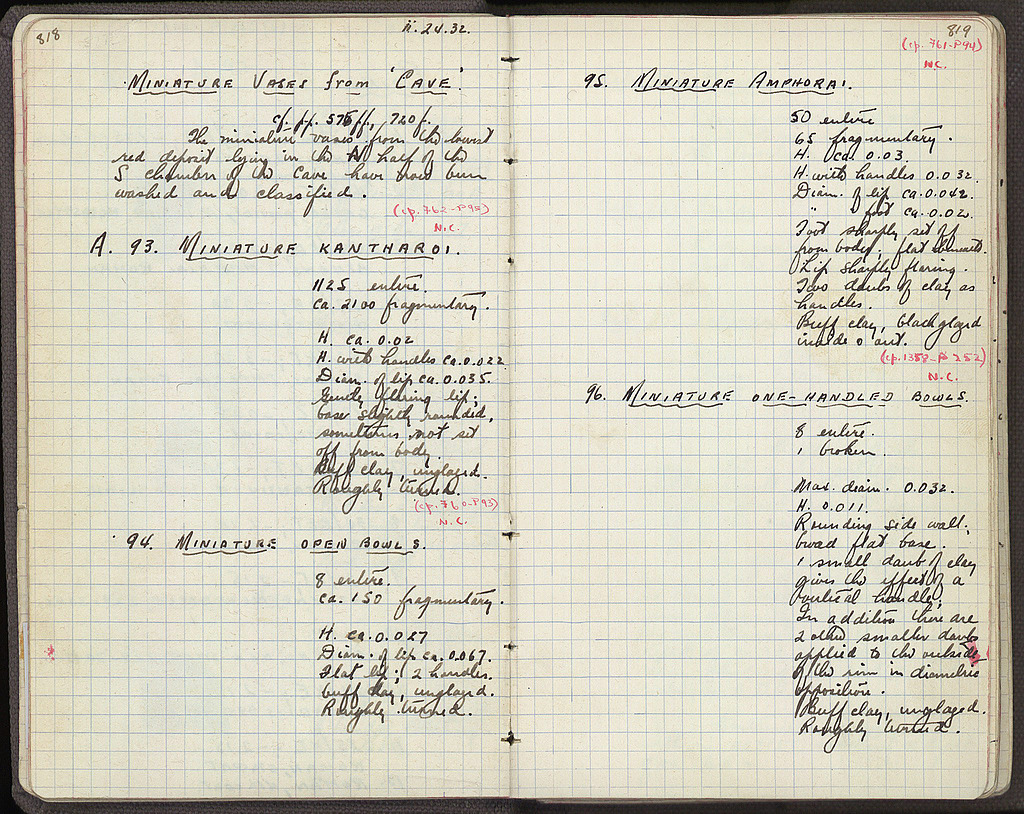 818
ii.24.32.
MINIATURE VASES from 'CAVE'.
cf. pp. 575 ff, 720 f.
The miniature vases from the lowest
red deposit lying in the N half of the
S chamber of the Cave have now been
washed and classified.
(cp. 762-P95)
N.C.
A. 93. MINIATURE KANTHAROI.
1125 entire.
ca. 2100 fragmentary.
H. ca. 0.02
H. with handles ca. 0.022
Diam. of lip ca. 0.035.
Gently flaring lip;
base slightly rounded,
sometimes not set
off from body.
Buff clay, unglazed.
Roughly turned.
(cp. 760-P93)
N.C.
94. MINIATURE OPEN BOWLS.
8 entire.
ca. 150 fragmentary.
H. ca. 0.027
Diam. of lip ca. 0.067.
Flat lip; 2 handles.
buff clay, unglazed.
Roughly turned.
819
(cp. 761-P94)
N.C.
95. MINIATURE AMPHORAI.
50 entire
65 fragmentary.
H. ca. 0.03.
H. with handles 0.032.
Diam. of lip ca. 0.042.
" " foot ca. 0.02.
Foot sharply set off
from body; flat beneath.
Lip sharply flaring.
Two daubs of clay as
handles.
Buff clay, black glazed
inside & out.
(cp. 1358-P 252)
N.C.
96. MINIATURE ONE-HANDLED BOWLS.
8 entire.
1 broken.
Max. diam. 0.032.
H. 0.011.
Rounding side wall;
broad flat base.
1 small daub of clay
gives the effect of a
vertical handle;
In addition there are
2 other smaller daubs
applied to the outside
of the rim in diametric
opposition.
Buff clay, unglazed.
Roughly turned.